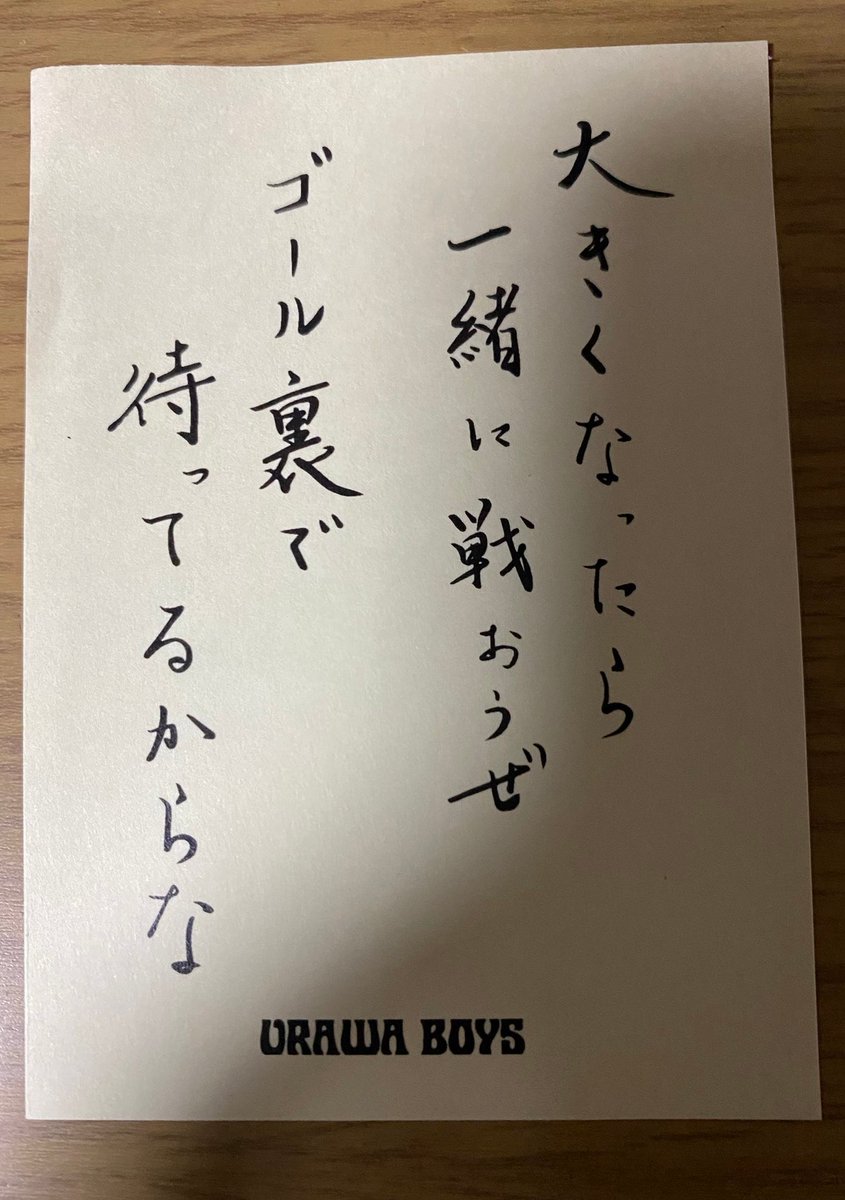 大きくなったら
一緒に戦おうぜ
ゴール裏で
待ってるからな
URAWA BOYS